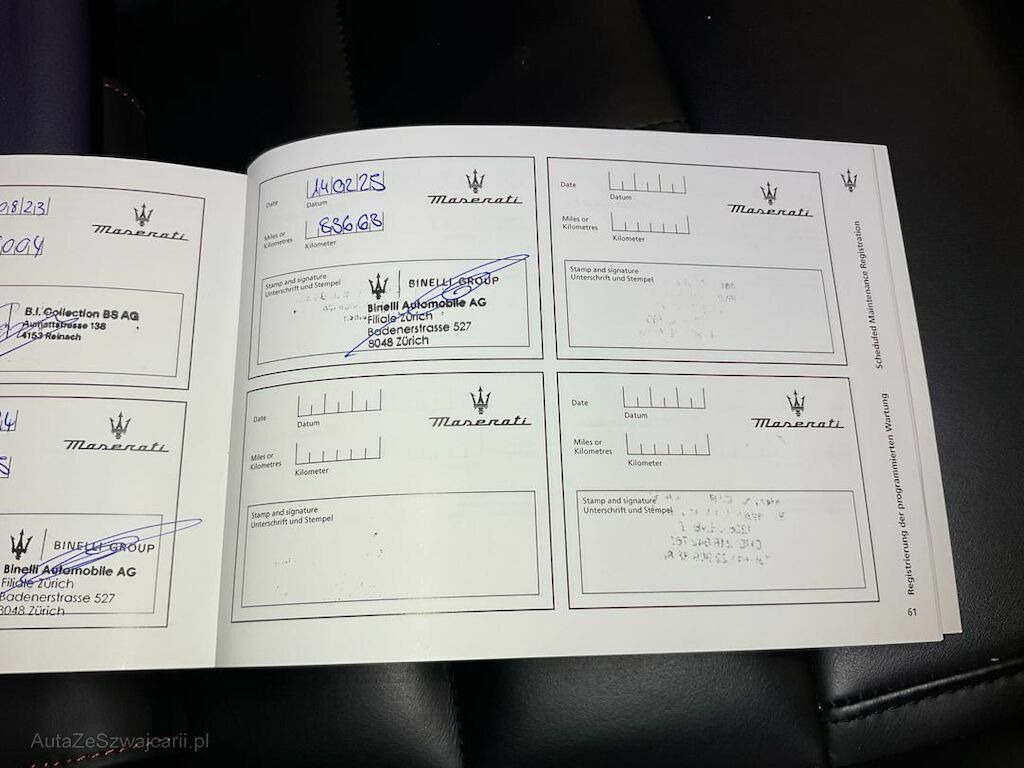 0823
Maserati
004
B.I. Collection BS AG
Aumattstrasse 138
4153 Reinach
Maserati
BINELLI GROUP
Binelli Automobile AG
Filiale Zürich
Badenerstrasse 527
8048 Zürich
Date
140225
Datum
Maserati
Miles or
Kilometres
83663
Kilometer
Stamp and signature
Unterschrift und Stempel
BINELLI GROUP
Binelli Automobile AG
Filiale Zürich
Badenerstrasse 527
8048 Zürich
Date
Datum
Maserati
Miles or
Kilometres
Kilometer
Stamp and signature
Unterschrift und Stempel
Date
Datum
Maserati
Miles or
Kilometres
Kilometer
Stamp and signature
Unterschrift und Stempel
Date
Datum
Maserati
Miles or
Kilometres
Kilometer
Stamp and signature
Unterschrift und Stempel
Scheduled Maintenance Registration
Registrierung der programmierten Wartung
61
AutaZeSzwajcarii.pl